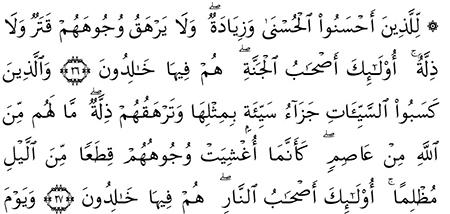 ۞ لِّلَّذِينَ أَحْسَنُوا۟ ٱلْحُسْنَىٰ وَزِيَادَةٌۭ ۖ وَلَا يَرْهَقُ وُجُوهَهُمْ قَتَرٌۭ وَلَا
ذِلَّةٌ ۚ أُو۟لَـٰٓئِكَ أَصْحَـٰبُ ٱلْجَنَّةِ ۖ هُمْ فِيهَا خَـٰلِدُونَ ﴿٢٦﴾ وَٱلَّذِينَ
كَسَبُوا۟ ٱلسَّيِّـَٔاتِ جَزَآءُ سَيِّئَةٍۭ بِمِثْلِهَا وَتَرْهَقُهُمْ ذِلَّةٌۭ ۖ مَّا لَهُم مِّنَ
ٱللَّهِ مِنْ عَاصِمٍۢ ۖ كَأَنَّمَآ أُغْشِيَتْ وُجُوهُهُمْ قِطَعًۭا مِّنَ ٱلَّيْلِ
مُظْلِمًا ۚ أُو۟لَـٰٓئِكَ أَصْحَـٰبُ ٱلنَّارِ ۖ هُمْ فِيهَا خَـٰلِدُونَ ﴿٢٧﴾ وَيَوْمَ